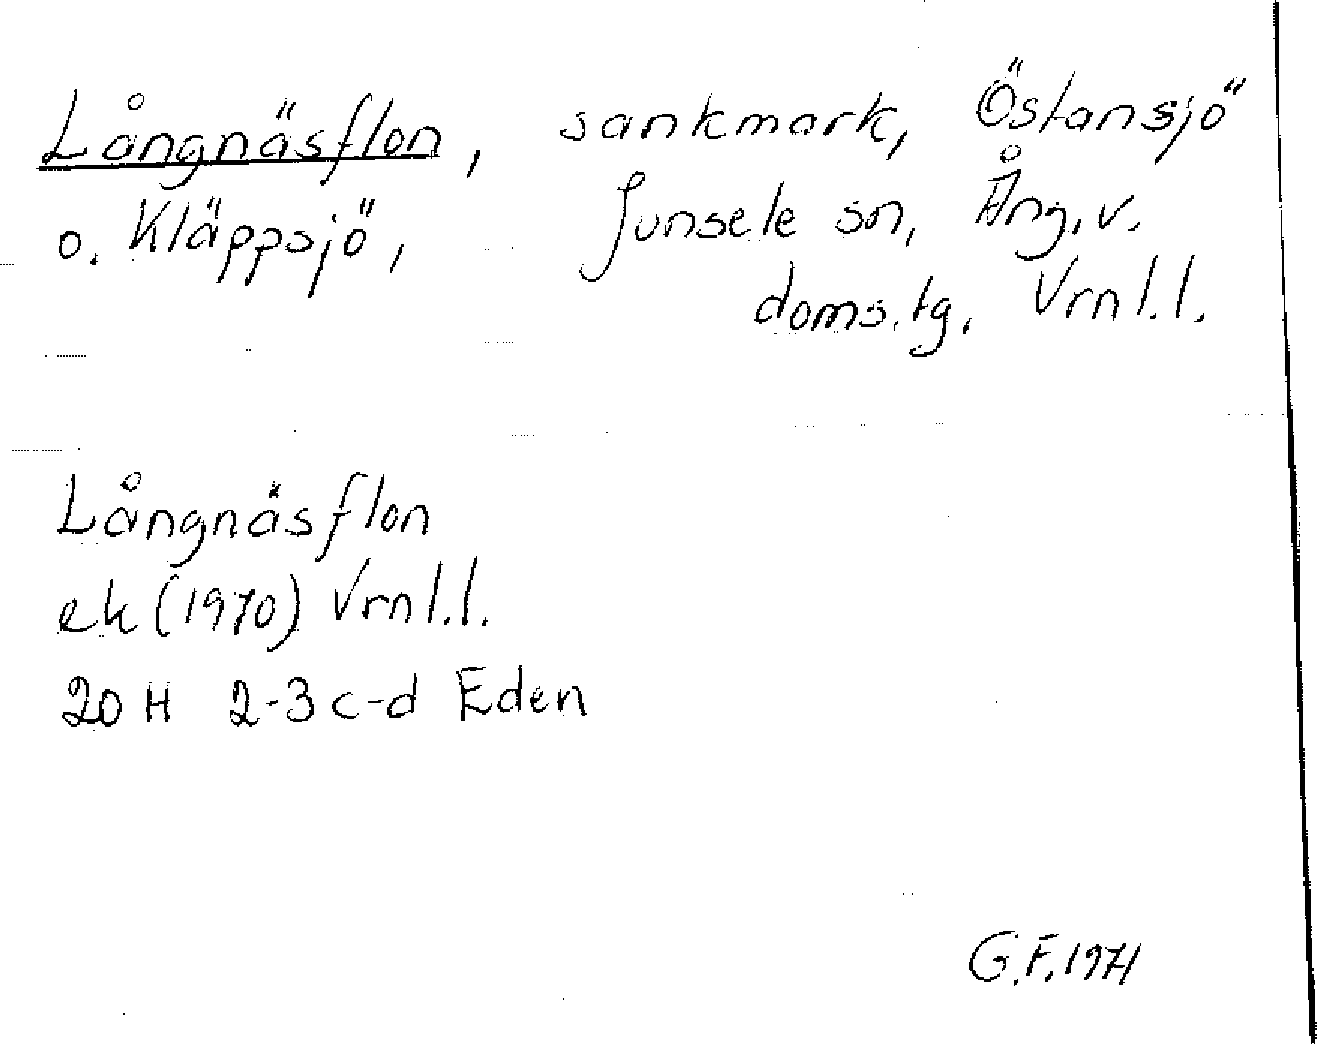 Långnäsflon, sankmark, Östansjö
o. Kläppsjö, Junsele sn, Ång. v.
doms. tg. Vrnl. l.
Långnäsflon
ek (1970) Vrnl. l.
20 H 2-3 c-d Eden
G. F. 1971